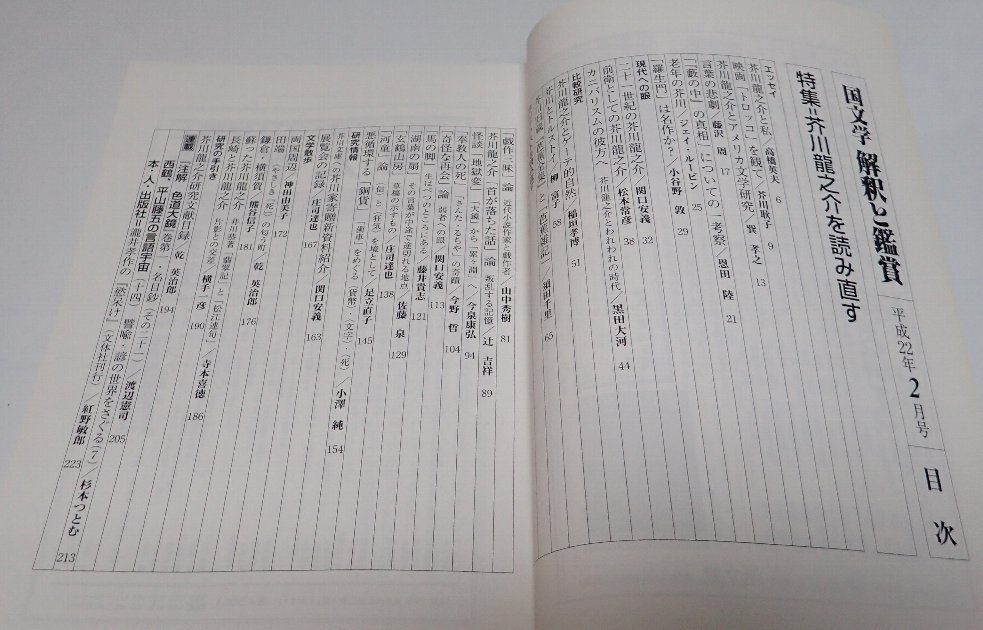 国文学 解釈と鑑賞 平成22年2月号 目次
特集=芥川龍之介を読み直す
エッセイ
芥川龍之介と私 高橋英夫 6
映画「トロッコ」を観て 芥川耿子 9
芥川龍之介とアメリカ文学研究 巽 孝之 13
言葉の悲劇 藤沢 周 17
「藪の中」の真相」についての一考察 恩田 陸 21
老年の芥川 ジェイ・ルービン 25
「羅生門」は名作か? 小谷野 敦 29
現代への眼
二十一世紀の芥川龍之介 関口安義 32
前衛としての芥川龍之介 松本常彦 38
カニバリズムの彼方へ 芥川龍之介とわれわれの時代 黒田大河 44
比較研究
芥川龍之介とゲーテ的自然 稲垣孝博 51
芥川とトルストイ 柳 富子 58
須田千里 65
「戯作三昧」論 近代小説作家と戯作者 山中秀樹 81
芥川龍之介「首が落ちた話」論 叛乱する記憶 辻 吉祥 89
怪談・地獄変 「大鏡」から「累ヶ淵」へ 今泉康弘 94
「奉教人の死」 「さんた・るちや」の奇蹟 今野 哲 104
「奇怪な再会」論 弱者への眼 関口安義 113
「馬の脚」 生はべつのところにある 藤井貴志 121
「湖南の扇」 その言葉が中途で途切れる地点 佐藤 泉 129
「玄鶴山房」 墓標の示すもの 庄司達也 138
「河童」論 〈伝〉と〈狂気〉を境として 足立直子 145
悪循環する「銅貨」 「歯車」をめぐる〈貨幣〉・〈文字〉・〈死〉 小澤 純 154
研究情報
「芥川文庫」への芥川家寄贈新資料紹介 関口安義 163
展覧会の記録 庄司達也 167
文学散歩
両国周辺 神田由美子 172
田端 〈やさしき〉〈死〉の匂う町 乾 英治郎 176
鎌倉・横須賀 熊谷信子 181
蘇った芥川龍之介 井川恭著『翡翠記』と「松江連句」 寺本喜徳 186
長崎と芥川龍之介 片影との交差 横手一彦 190
研究の手引き
芥川龍之介研究文献目録 乾 英治郎 194
連載
〔注解〕色道大鏡 巻第一・名目鈔(その二十二) 渡辺憲司 205
西鶴・平山藤五の言語宇宙(十四) 譬喩・諺の世界をさぐる(7) 杉本つとむ 213
本・人・出版社 瀧井孝作の『慾呆け』(文体社刊行) 紅野敏郎 223